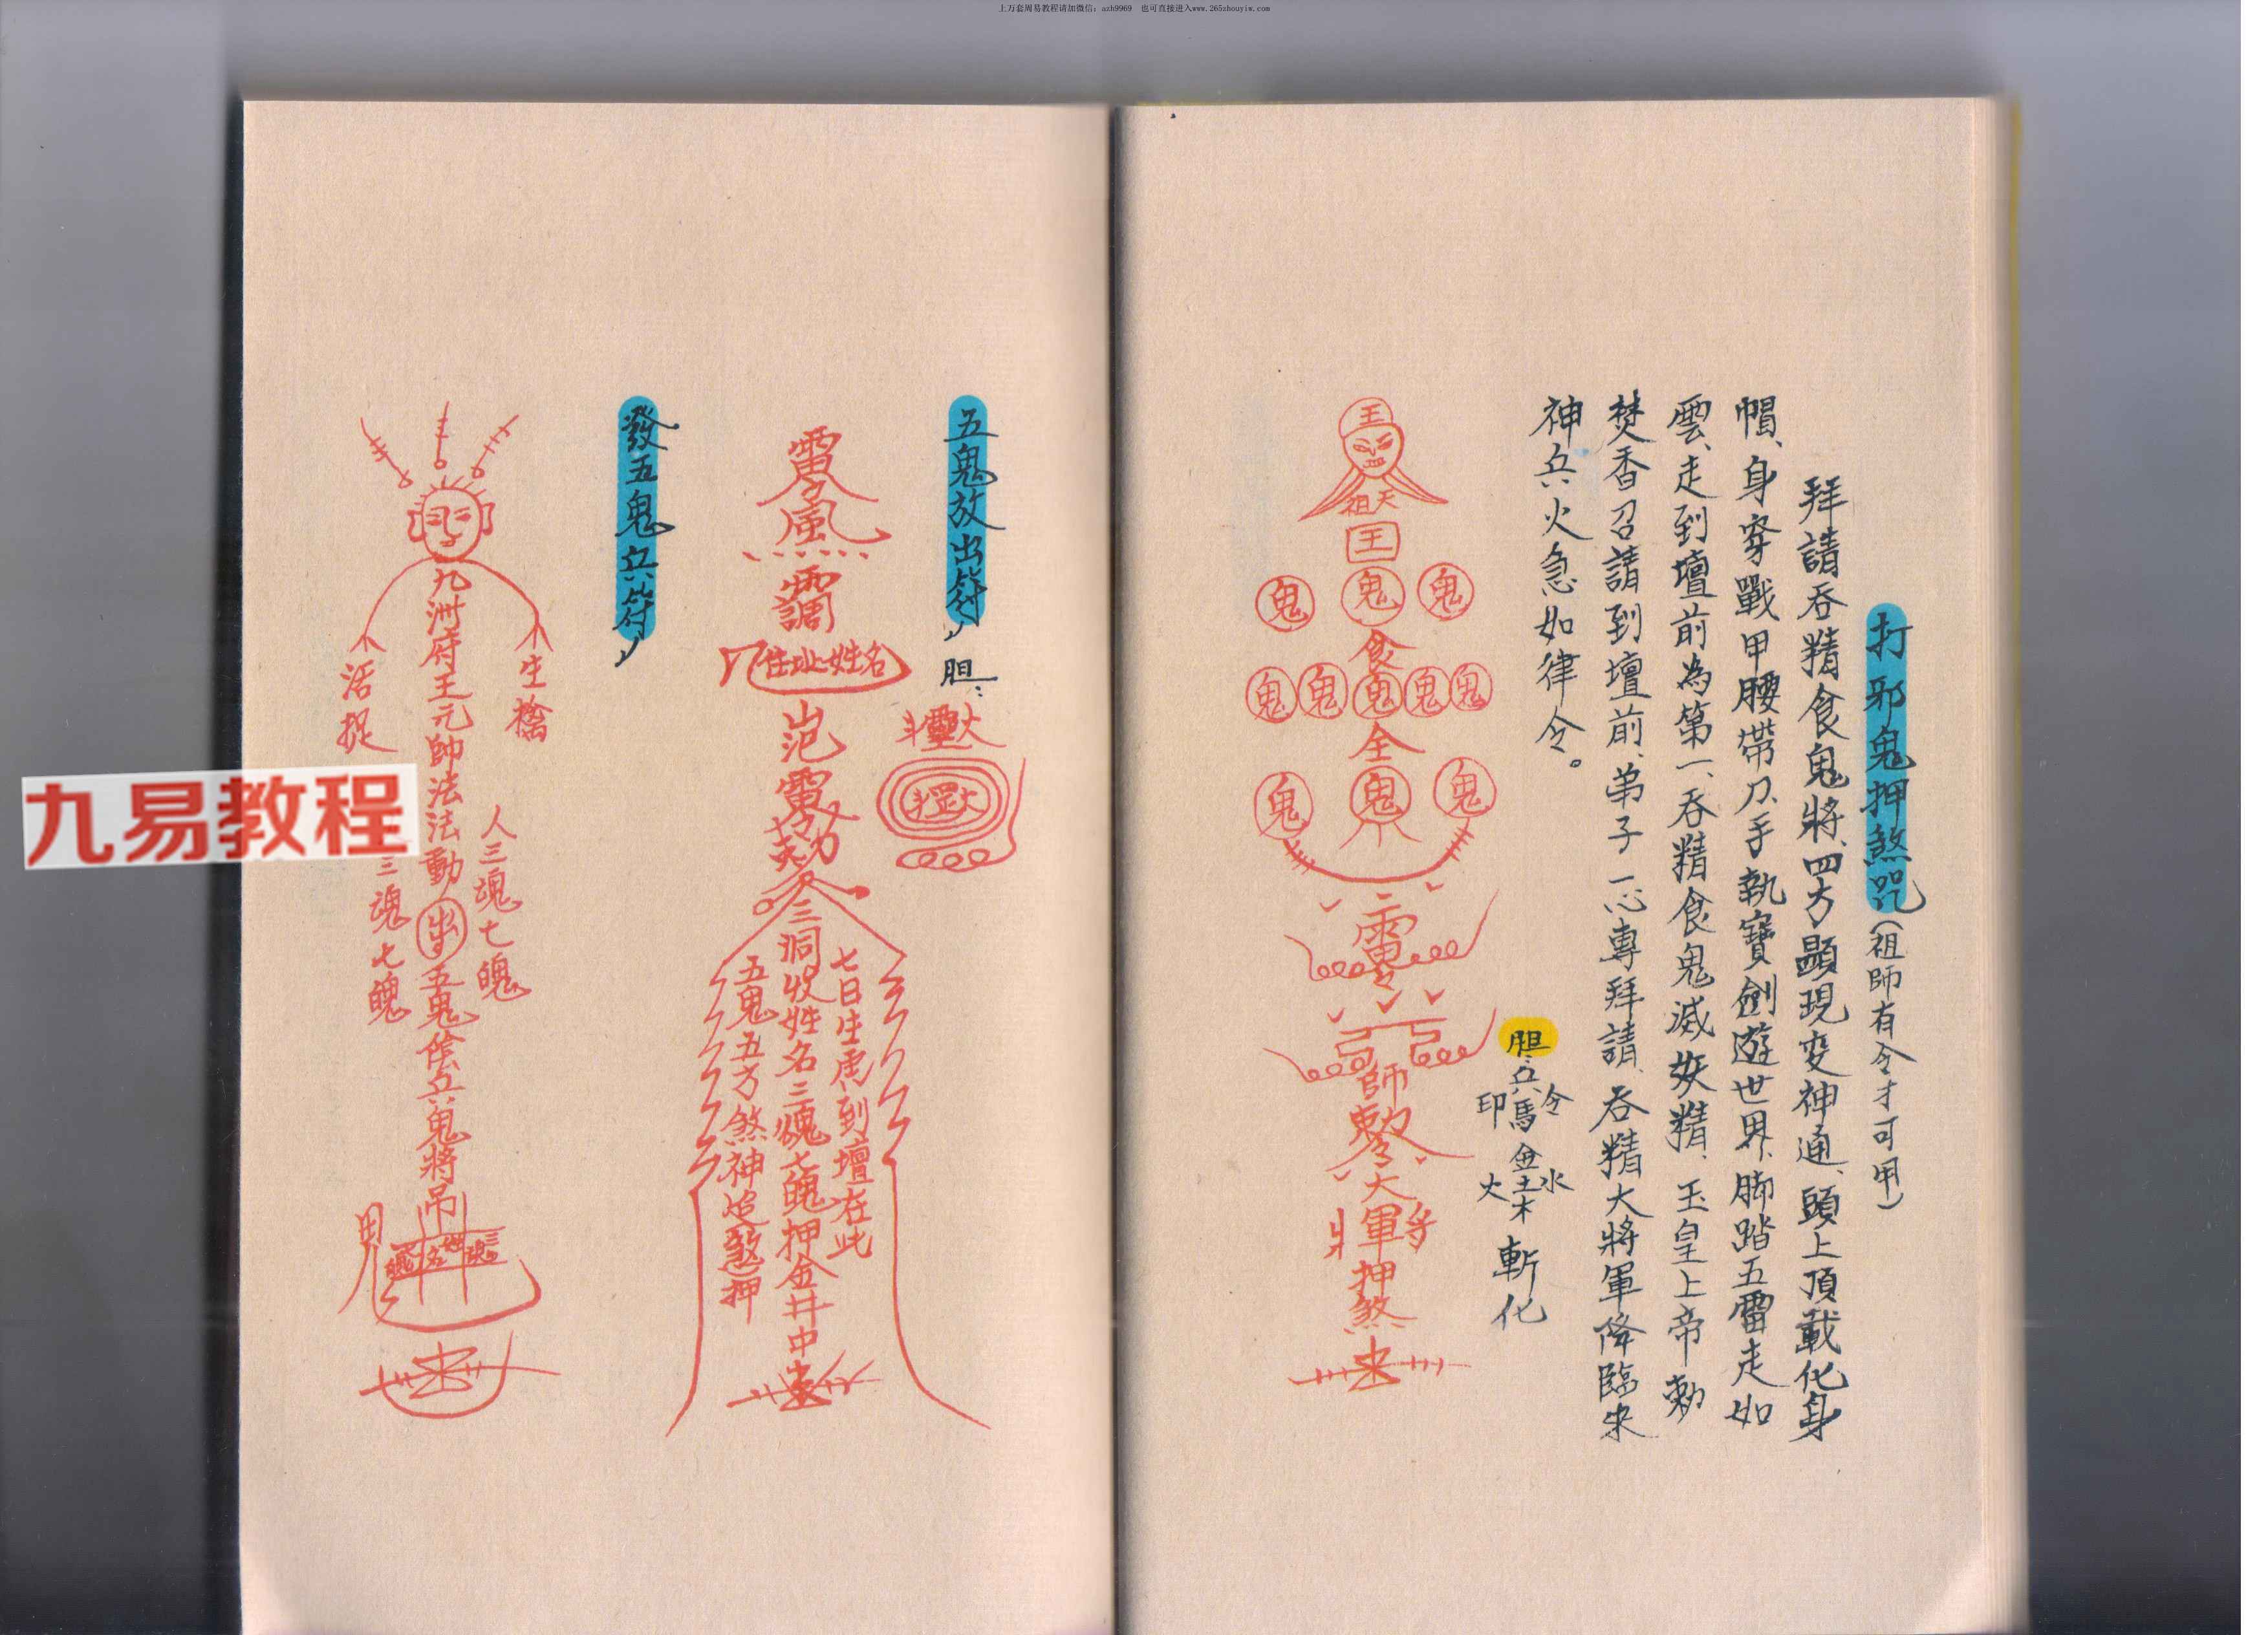 上万套周易教程请加微信：azh9969　也可直接进入www.265zhouyiw.com
打邪鬼押煞咒（祖師有令才可用）
拜請吞精食鬼將、四方顯現变神通、頭上頂載化身
帽、身穿戰甲腰帶刀、手執寶劍遊世界、脚踏五雷走如
雲、走到壇前為第一、吞精食鬼滅妖精、玉皇上帝勅
焚香召請到壇前、弟子一心專拜請、吞精大將軍降臨来
神兵火急如律令。
胆：兵馬
令
印
金
水
土
火
木
斬化
王
天
祖
王
鬼 鬼 鬼
食
鬼 鬼 鬼 鬼 鬼
全
鬼 鬼 鬼
師
大
將軍
押煞
五鬼放出符，胆：
風
住址姓名
三洞收姓名三魂七魄押金井中
七日生處到壇在此
五鬼五方煞神追煞押
發五鬼兵符，
九洲府王元帥法法動
五鬼陰兵鬼將吊
生擒
活捉
人三魂七魄
三魂七魄
九易教程